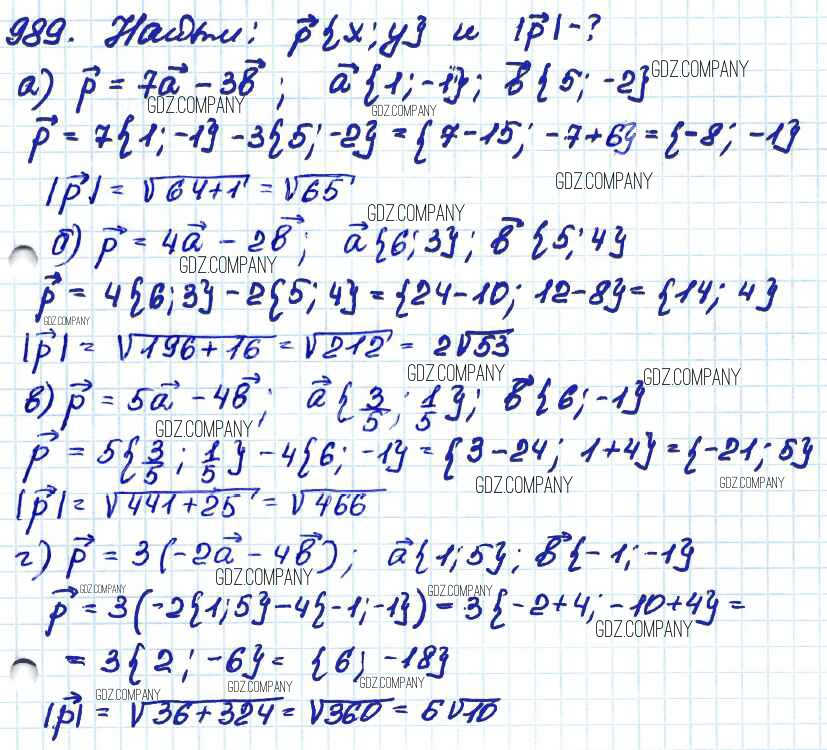 989. Найти: p⃗{x; y} и |p⃗| - ?
а) p⃗ = 7a⃗ - 3b⃗; a⃗{1; -1}; b⃗{5; -2} GDZ.COMPANY
GDZ.COMPANY GDZ.COMPANY
p⃗ = 7{1; -1} - 3{5; -2} = {7-15; -7+6} = {-8; -1}
|p⃗| = √64+1 = √65 GDZ.COMPANY
GDZ.COMPANY
б) p⃗ = 4a⃗ - 2b⃗; a⃗{6; 3}; b⃗{5; 4}
GDZ.COMPANY
p⃗ = 4{6; 3} - 2{5; 4} = {24-10; 12-8} = {14; 4}
GDZ.COMPANY
|p⃗| = √196+16 = √212 = 2√53
GDZ.COMPANY GDZ.COMPANY
в) p⃗ = 5a⃗ - 4b⃗; a⃗{3/5; 1/5}; b⃗{6; -1}
GDZ.COMPANY
p⃗ = 5{3/5; 1/5} - 4{6; -1} = {3-24; 1+4} = {-21; 5}
GDZ.COMPANY GDZ.COMPANY
|p⃗| = √441+25 = √466
г) p⃗ = 3(-2a⃗ - 4b⃗); a⃗{1; 5}; b⃗{-1; -1}
GDZ.COMPANY
GDZ.COMPANY GDZ.COMPANY
p⃗ = 3(-2{1; 5} - 4{-1; -1}) = 3{-2+4; -10+4} =
GDZ.COMPANY
= 3{2; -6} = {6; -18}
GDZ.COMPANY GDZ.COMPANY GDZ.COMPANY
|p⃗| = √36+324 = √360 = 6√10